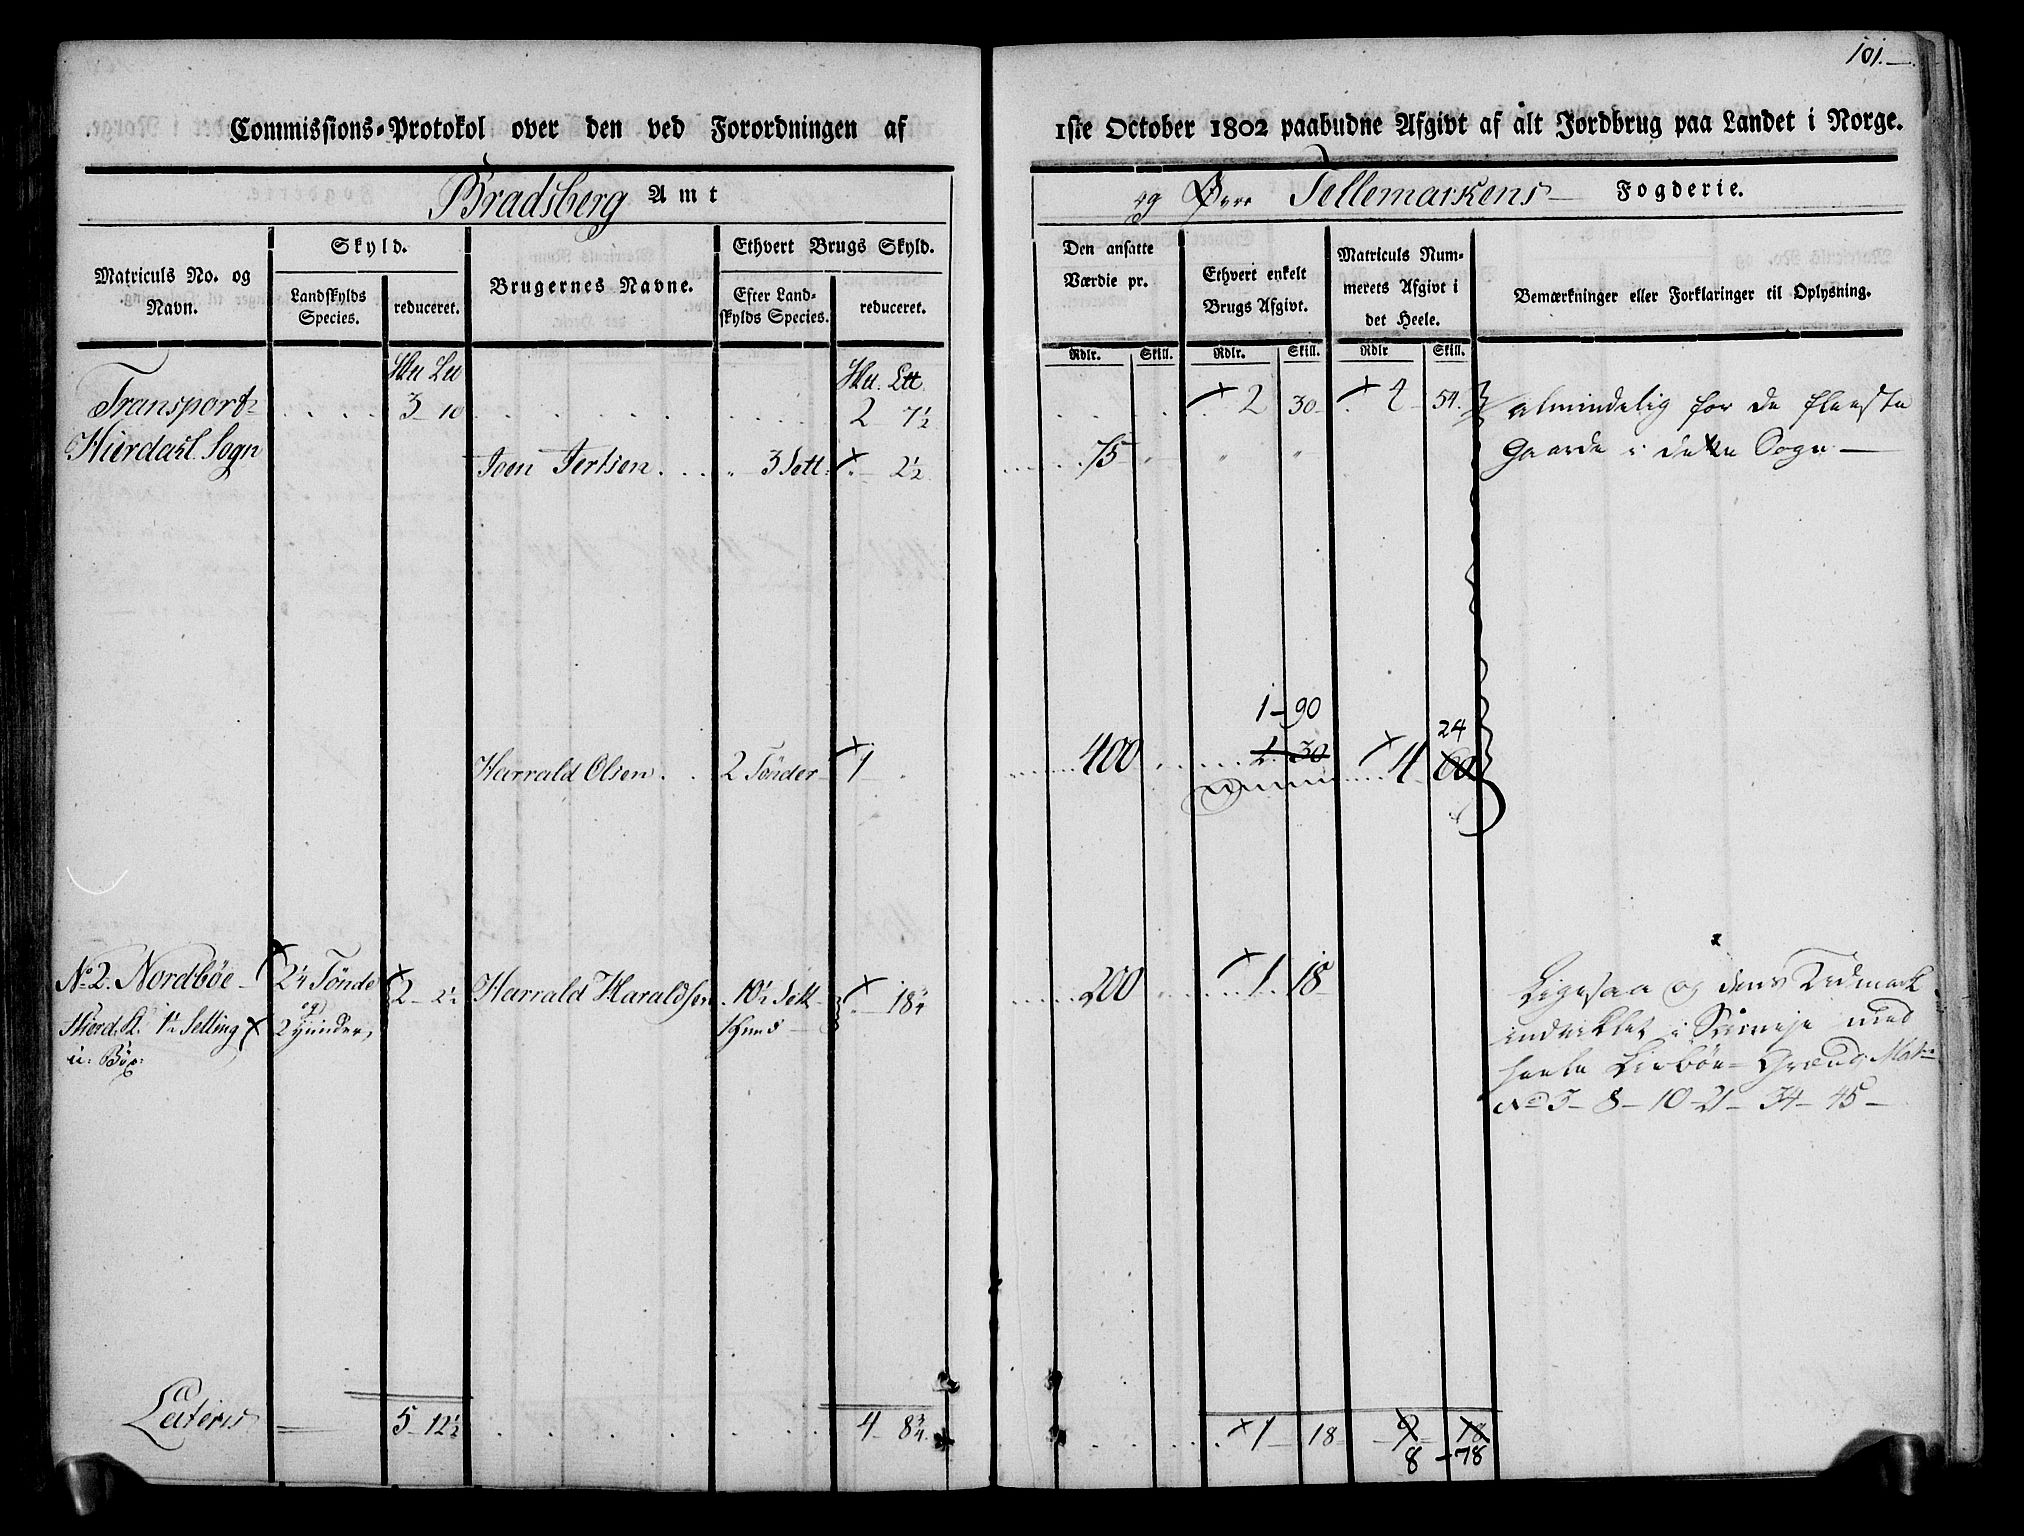 101.
Commissions-Protokol over den ved Forordningen af
1ste October 1802 paabudne Afgivt af alt Jordbrug paa Landet i Norge.
Bradsberg Amt
og Øvre Tellemarkens Fogderie.
Matriculs No. og Navn.
Skyld.
Landskylds Species.
reduceret.
Brugernes Navne.
Ethvert Brugs Skyld.
Efter Landskylds Species.
reduceret.
Den ansatte Værdie pr.
Ethvert enkelt Brugs Afgivt.
Matriculs Nummerets Afgivt i det Heele.
Bemærkninger eller Forklaringer til Oplysning.
Rdlr. Skill. Rdlr. Skill. Rdlr Skill.
Transport 3 10 2 7½ 2 30 4 54 almindelig for de fleeste
Hierdahl Sogn Joen Jertsen 3 Sett. 2½ 75 Gaarde i dette Sogn
1-90
24
Harrald Olsen 2 Tönder 1 400 1 30 4 60
No 2. Nordbøe 2¼ Tönde 2 2½ Harrald Haraldsen 10½ Sett 18¼ 200 1 18 Ligesaa og dens Udmark
Hierd. K. Setting og 2 1 indviklet i med
u: Bøx: heele Grænd Mat:
No 5-8-10-21-34-45
Lateris 5 12½ 4 8¾ 1 18 9 18
8-78